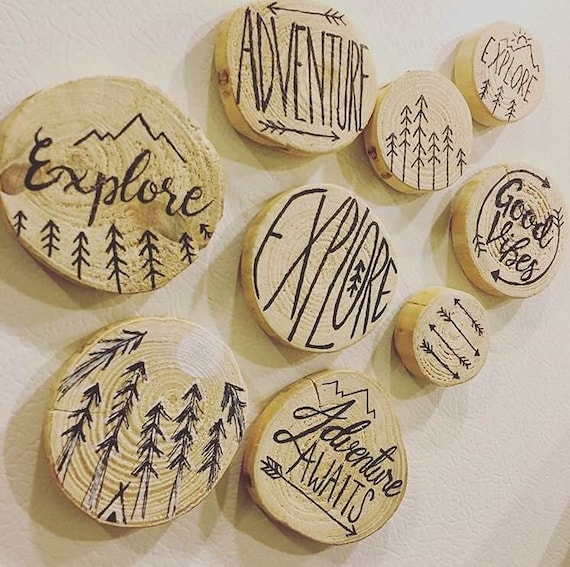 ADVENTURE
EXPLORE
Explore
EXPLORE
Good
Vibes
Adventure
AWAITS